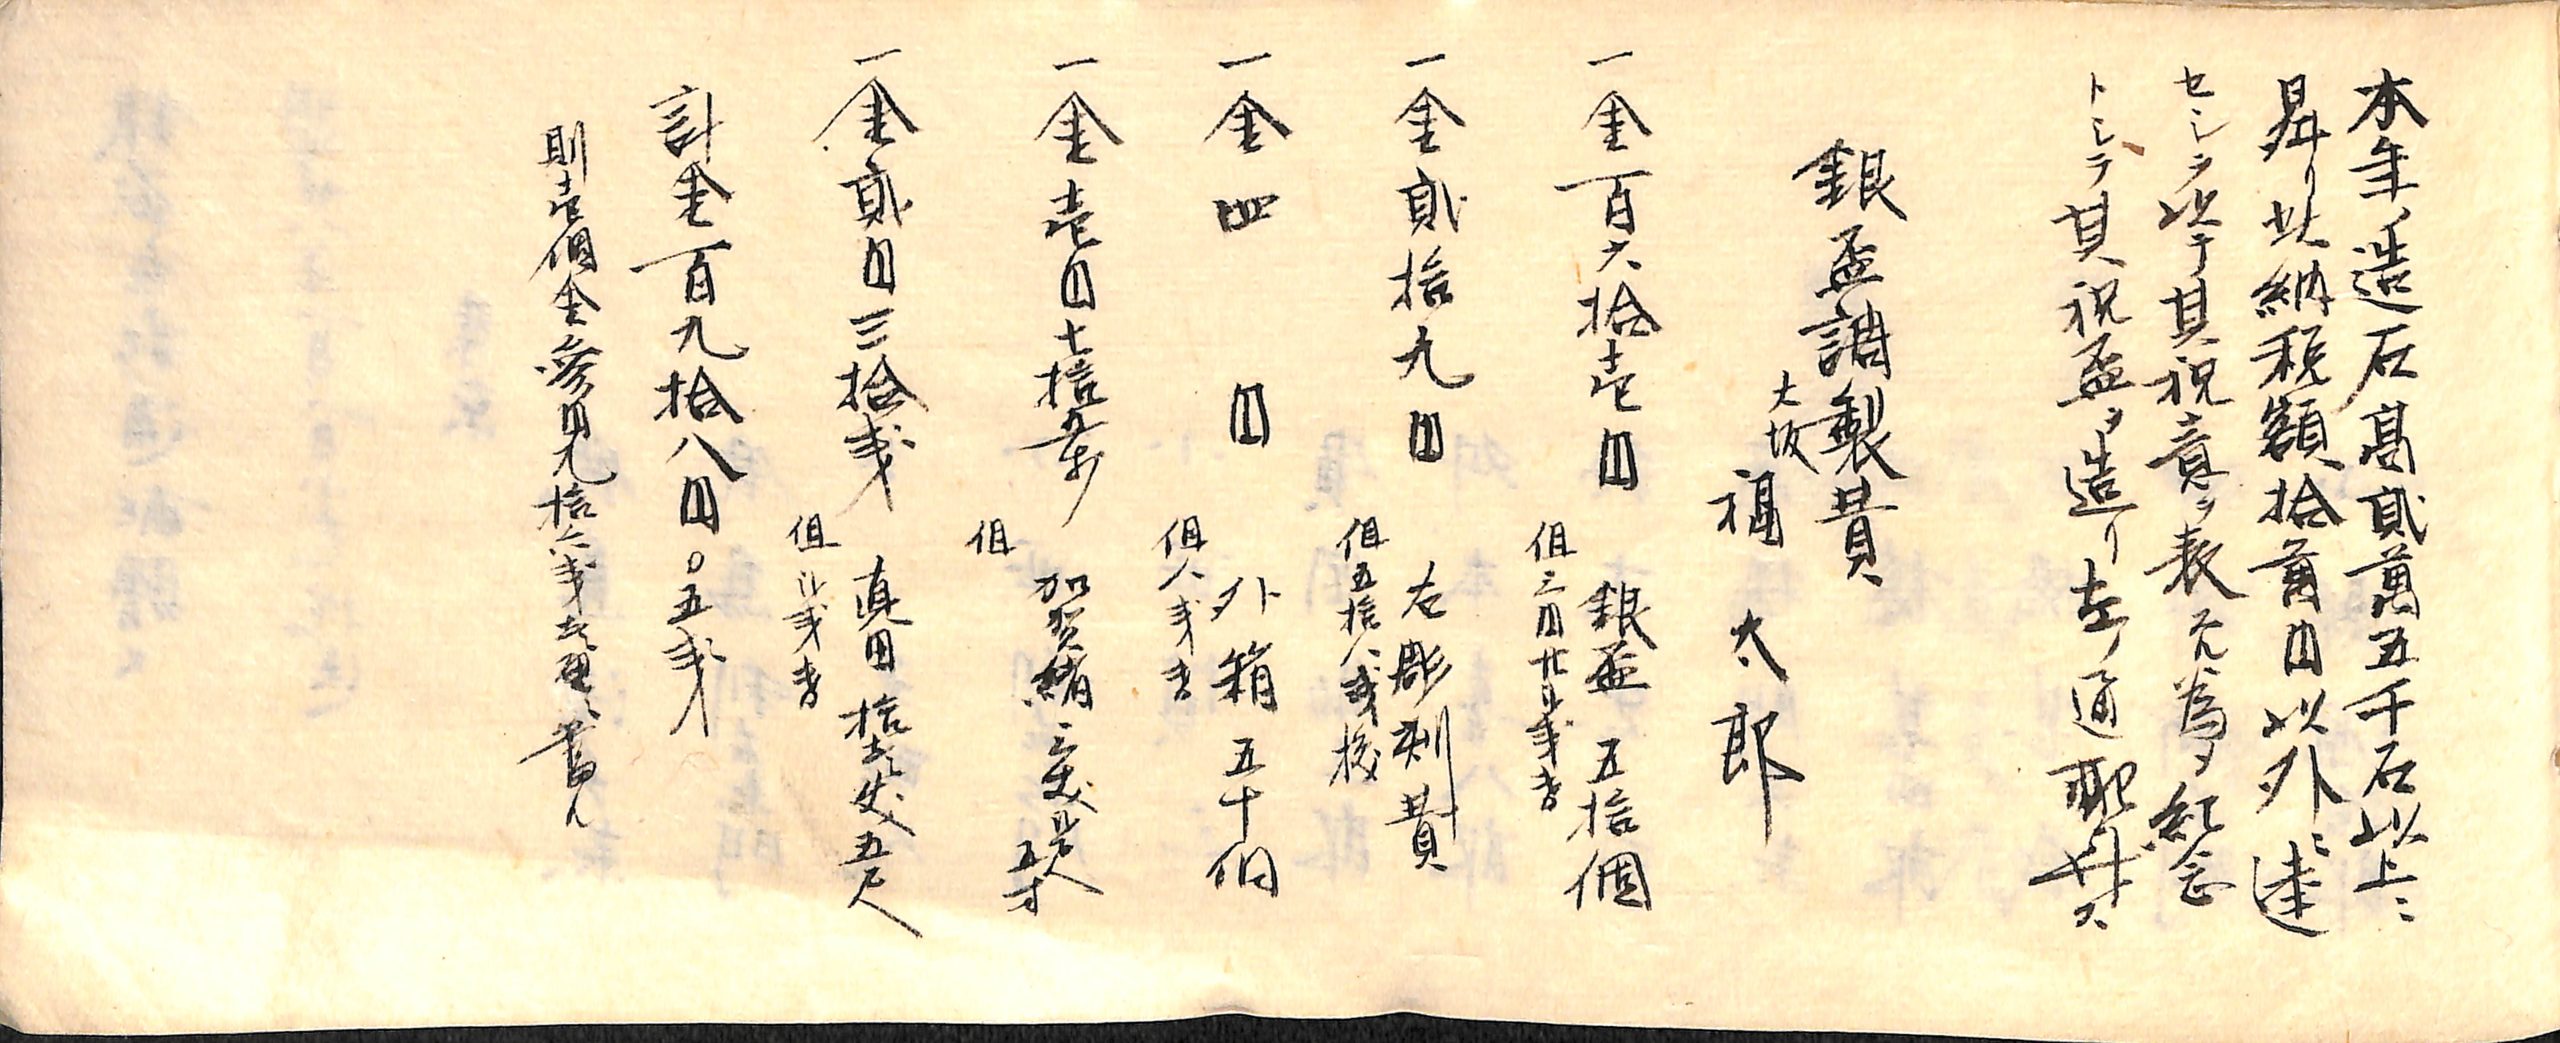 本年ノ造石高貳萬五千石以上ニ
昇リ此納税額拾萬円以外ニ達
セシヲ以テ其祝意ヲ表スル為メ紀念
トシテ其祝盃ヲ造リ左ノ通配与ス
銀盃調製費
大坂 福太郎
一金百六拾壱円 銀盃 五拾個
但三円廿二戋
一金貳拾九円 右彫刻費
但五拾八戋
一金四円 外箱五十個
但八戋
一金壱円七拾五戋 加賀緒
但
一金貳円三拾戋 真田 五尺
但 戋
計金百九拾八円〇五戋
則壱個金参円九拾六戋 ニ当ル